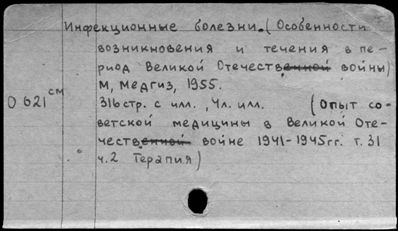 Инфекционные болезни. (Особенности
возникновения и течения в пе-
риод Великой Отечественной войны)
М, Медгиз, 1955.
О 621 см
316 стр. с илл., 4 л. илл. (Опыт со-
ветской медицины в Великой Оте-
чественной войне 1941-1945 гг. т. 31
ч. 2 Терапия)